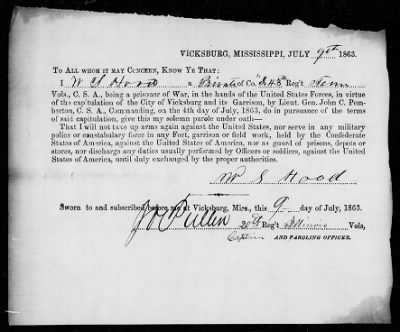 VICKSBURG, MISSISSIPPI, JULY 9th 1863.
TO ALL WHOM IT MAY CONCERN, KNOW YE THAT:
I W S Hood a Private of Co. 43d Reg't Tenn
Vols., C. S. A., being a prisoner of War, in the hands of the United States Forces, in virtue
of the capitulation of the City of Vicksburg and its Garrison, by Lieut. Gen. John C. Pem-
berton, C. S. A., Commanding, on the 4th day of July, 1863, do in pursuance of the terms
of said capitulation, give this my solemn parole under oath—
That I will not take up arms again against the United States, nor serve in any military
police or constabulary force in any Fort, garrison or field work, held by the Confederate
States of America, against the United States of America, nor as guard of prisons, depots or
stores, nor discharge any duties usually performed by Officers or soldiers, against the United
States of America, until duly exchanged by the proper authorities.
W S Hood
Sworn to and subscribed before me at Vicksburg, Miss., this 9 day of July, 1863.
Pullen 20th Reg't Illinois Vols,
Captain AND PAROLING OFFICER.